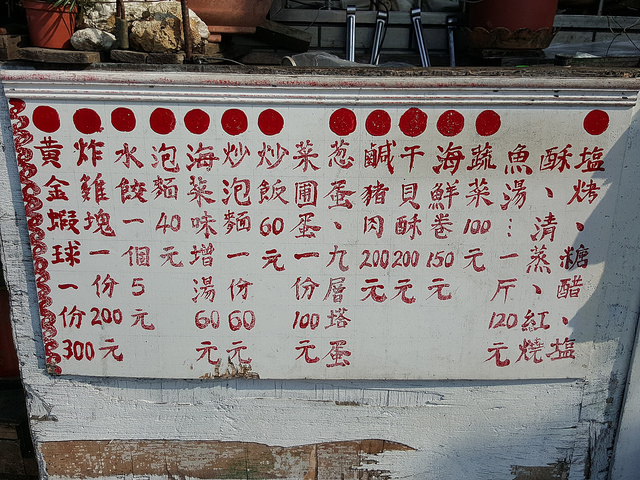 塩烤、糖醋、塩
酥、清蒸、紅燒
魚湯…一斤120元
蔬菜100元
海鮮卷150元
干貝酥200元
鹹豬肉200元
葱蛋、九層塔蛋
菜圃蛋一份100元
炒飯60元
炒泡麵一份60元
海菜味增湯60元
泡麵40元
水餃一個5元
炸雞塊一份200元
黃金蝦球一份300元